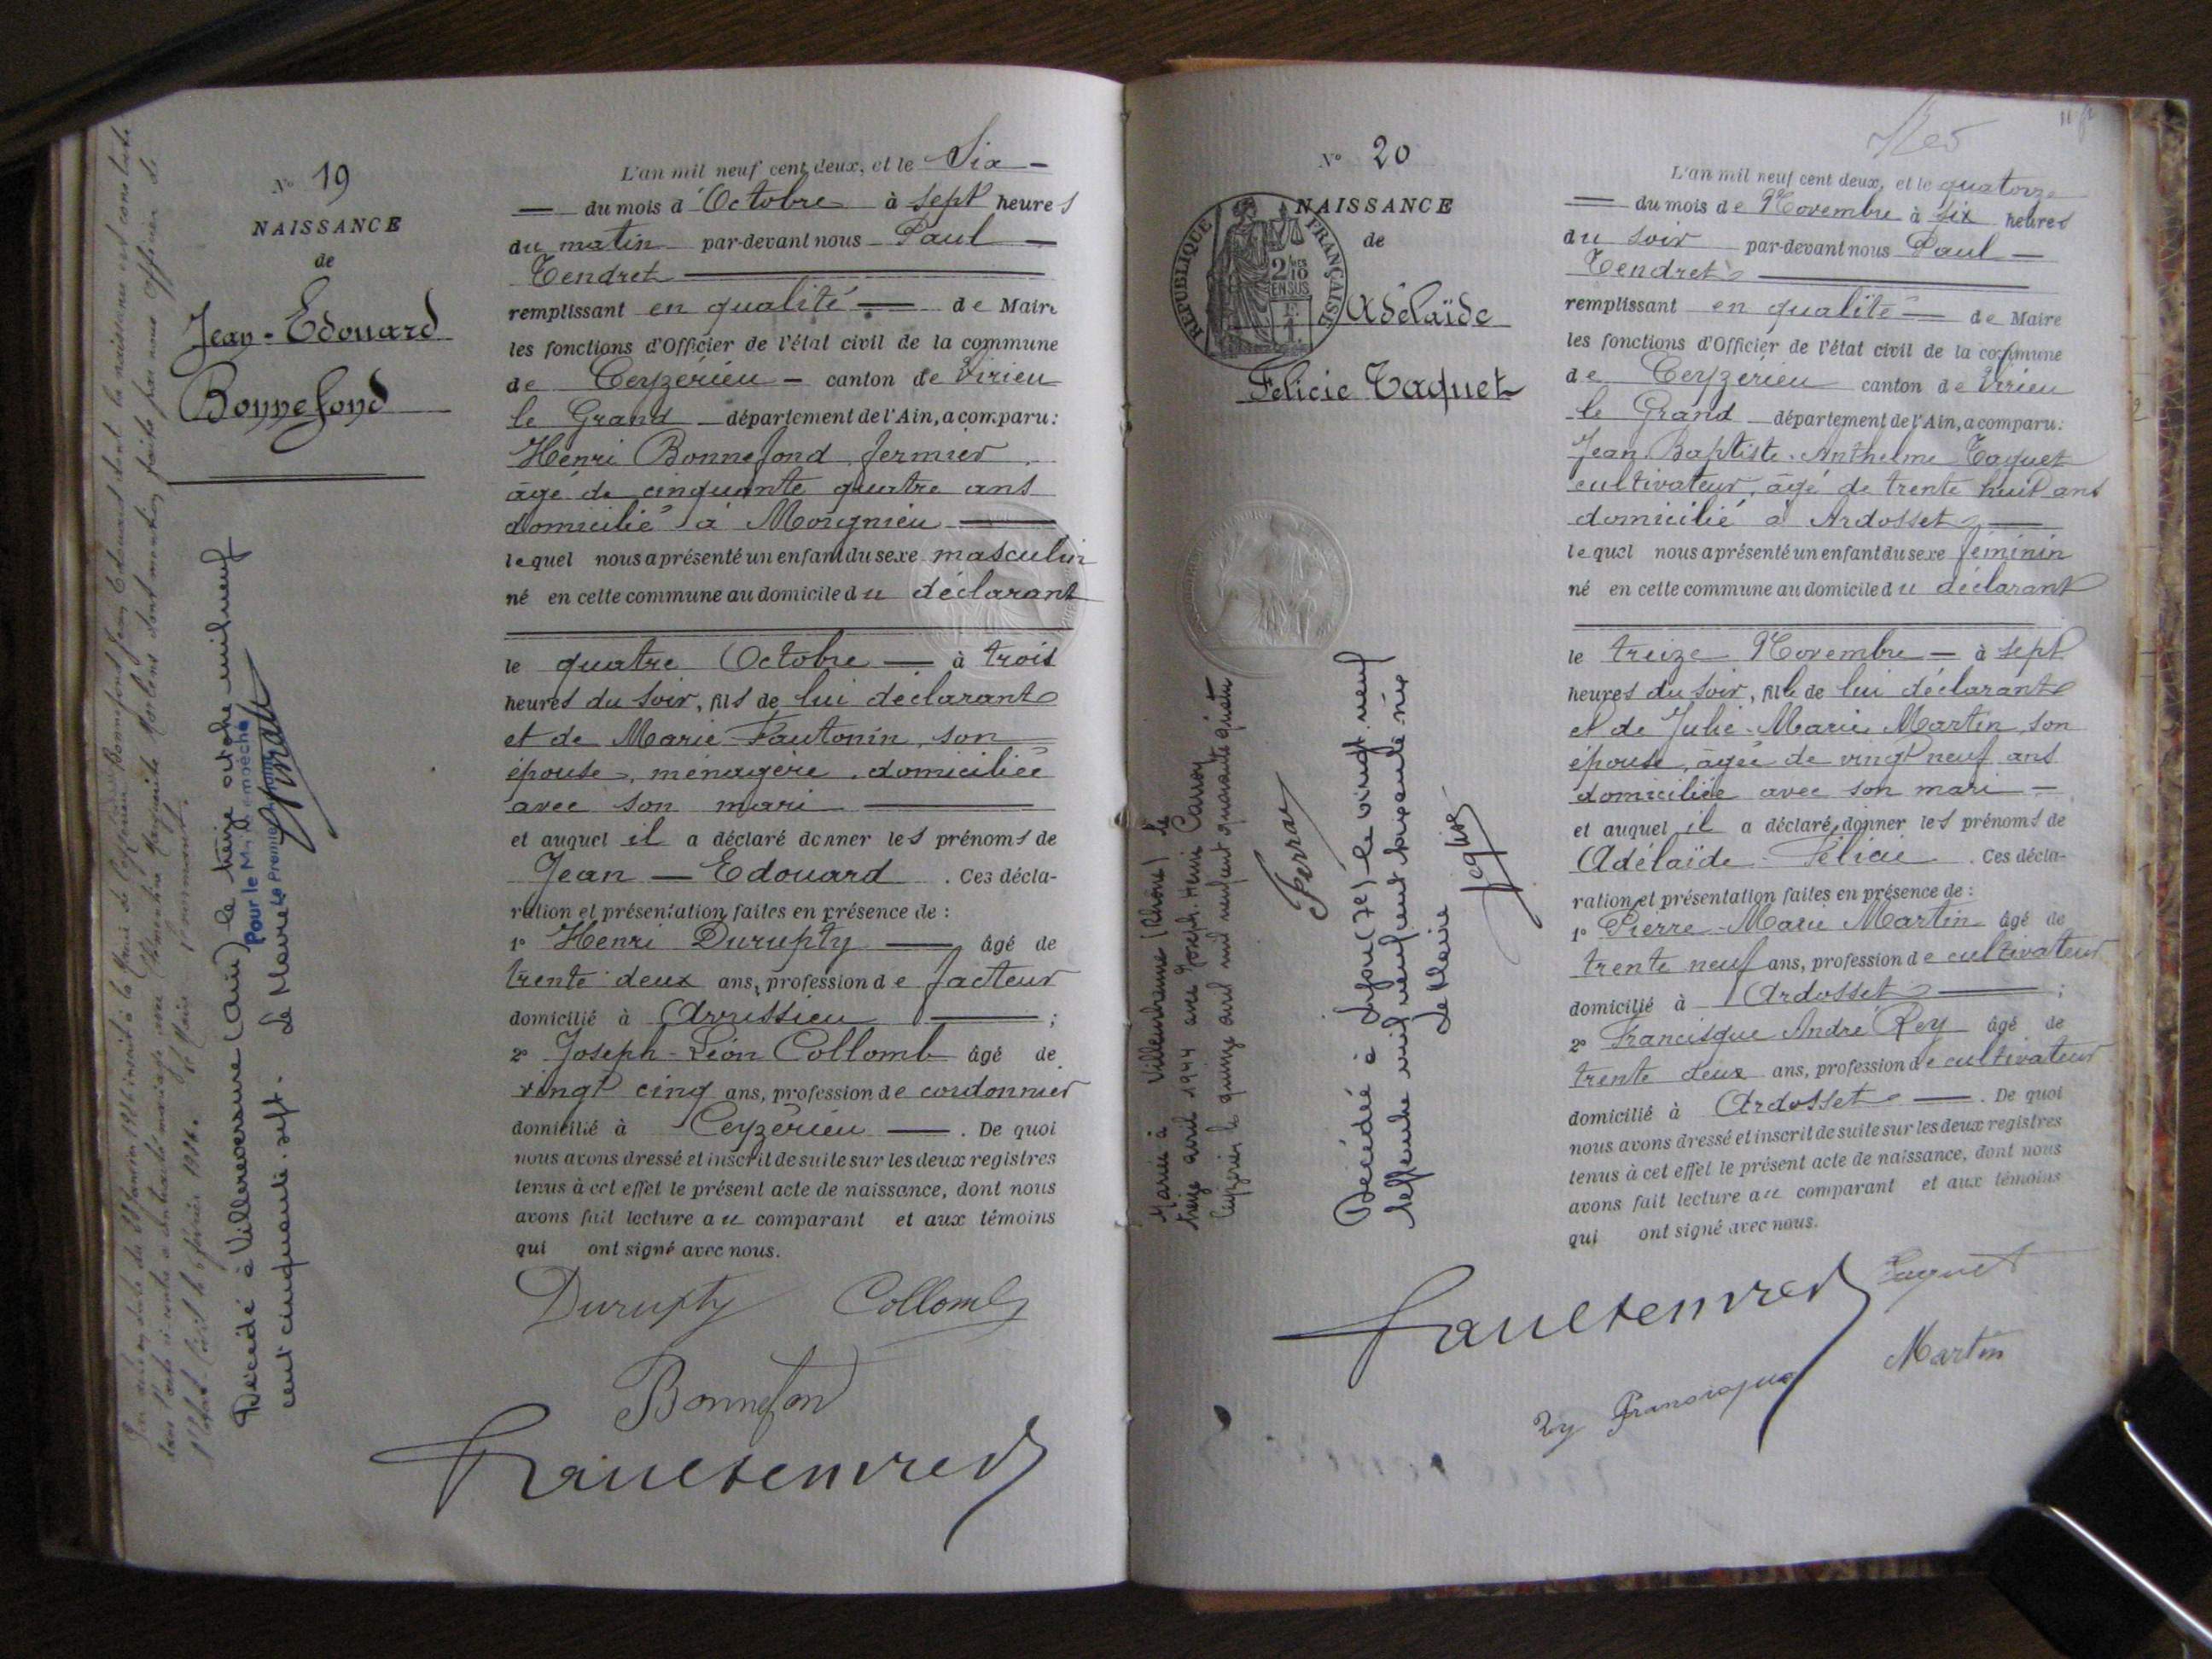 N° 19
NAISSANCE
de
Jean-Edouard
Bonnefond
Décédé à Villereversure (Ain) le treize octobre mil neuf
cent cinquante-sept.
Pour le Maire empêché
L'an mil neuf cent deux, et le Six
du mois d'Octobre à sept heures
du matin par-devant nous Paul
Tendret
remplissant en qualité de Maire
les fonctions d'Officier de l'état civil de la commune
de Ceyzérieu canton de Virieu
le Grand département de l'Ain, a comparu :
Henri Bonnefond fermier
âgé de cinquante quatre ans
domicilié à Morgnieu
lequel nous a présenté un enfant du sexe masculin
né en cette commune au domicile du déclarant
le quatre Octobre à trois
heures du soir, fils de lui déclarant
et de Marie Fautonin, son
épouse, ménagère, domiciliée
avec son mari
et auquel il a déclaré donner les prénoms de
Jean - Edouard. Ces décla-
ration et présentation faites en présence de :
1° Henri Durupty âgé de
trente deux ans, profession de facteur
domicilié à Avrissieu ;
2° Joseph-Léon Collomb âgé de
vingt cinq ans, profession de cordonnier
domicilié à Ceyzérieu. De quoi
nous avons dressé et inscrit de suite sur les deux registres
tenus à cet effet le présent acte de naissance, dont nous
avons fait lecture au comparant et aux témoins
qui ont signé avec nous.
Durupty Collomb
Bonnefond
Paul Tendret
N° 20
NAISSANCE
de
Adélaïde
Félicie Taquet
RÉPUBLIQUE FRANÇAISE
Mariée à Villeurbanne (Rhône) le
treize avril 1944 avec Joseph Henri Carroy
Ceyzérieu le quinze avril mil neuf cent quarante quatre
Ferrar
Décédée à Dijon (7e) le vingt neuf
septembre mil neuf cent soixante-dix
Le Maire
L'an mil neuf cent deux, et le quatorze
du mois de Novembre à six heures
du soir par-devant nous Paul
Tendret
remplissant en qualité de Maire
les fonctions d'Officier de l'état civil de la commune
de Ceyzérieu canton de Virieu
le Grand département de l'Ain, a comparu :
Jean-Baptiste-Anthelme Taquet
cultivateur, âgé de trente huit ans
domicilié à Ardosset
lequel nous a présenté un enfant du sexe féminin
né en cette commune au domicile du déclarant
le treize Novembre à sept
heures du soir, fille de lui déclarant
et de Julie-Marie Martin, son
épouse, âgée de vingt neuf ans
domiciliée avec son mari
et auquel il a déclaré donner les prénoms de
Adélaïde-Félicie. Ces décla-
ration et présentation faites en présence de :
1° Pierre-Marie Martin âgé de
trente neuf ans, profession de cultivateur
domicilié à Ardosset ;
2° Francisque André Rey âgé de
trente deux ans, profession de cultivateur
domicilié à Ardosset. De quoi
nous avons dressé et inscrit de suite sur les deux registres
tenus à cet effet le présent acte de naissance, dont nous
avons fait lecture au comparant et aux témoins
qui ont signé avec nous.
Paul Tendret Taquet
Rey Francisque Martin